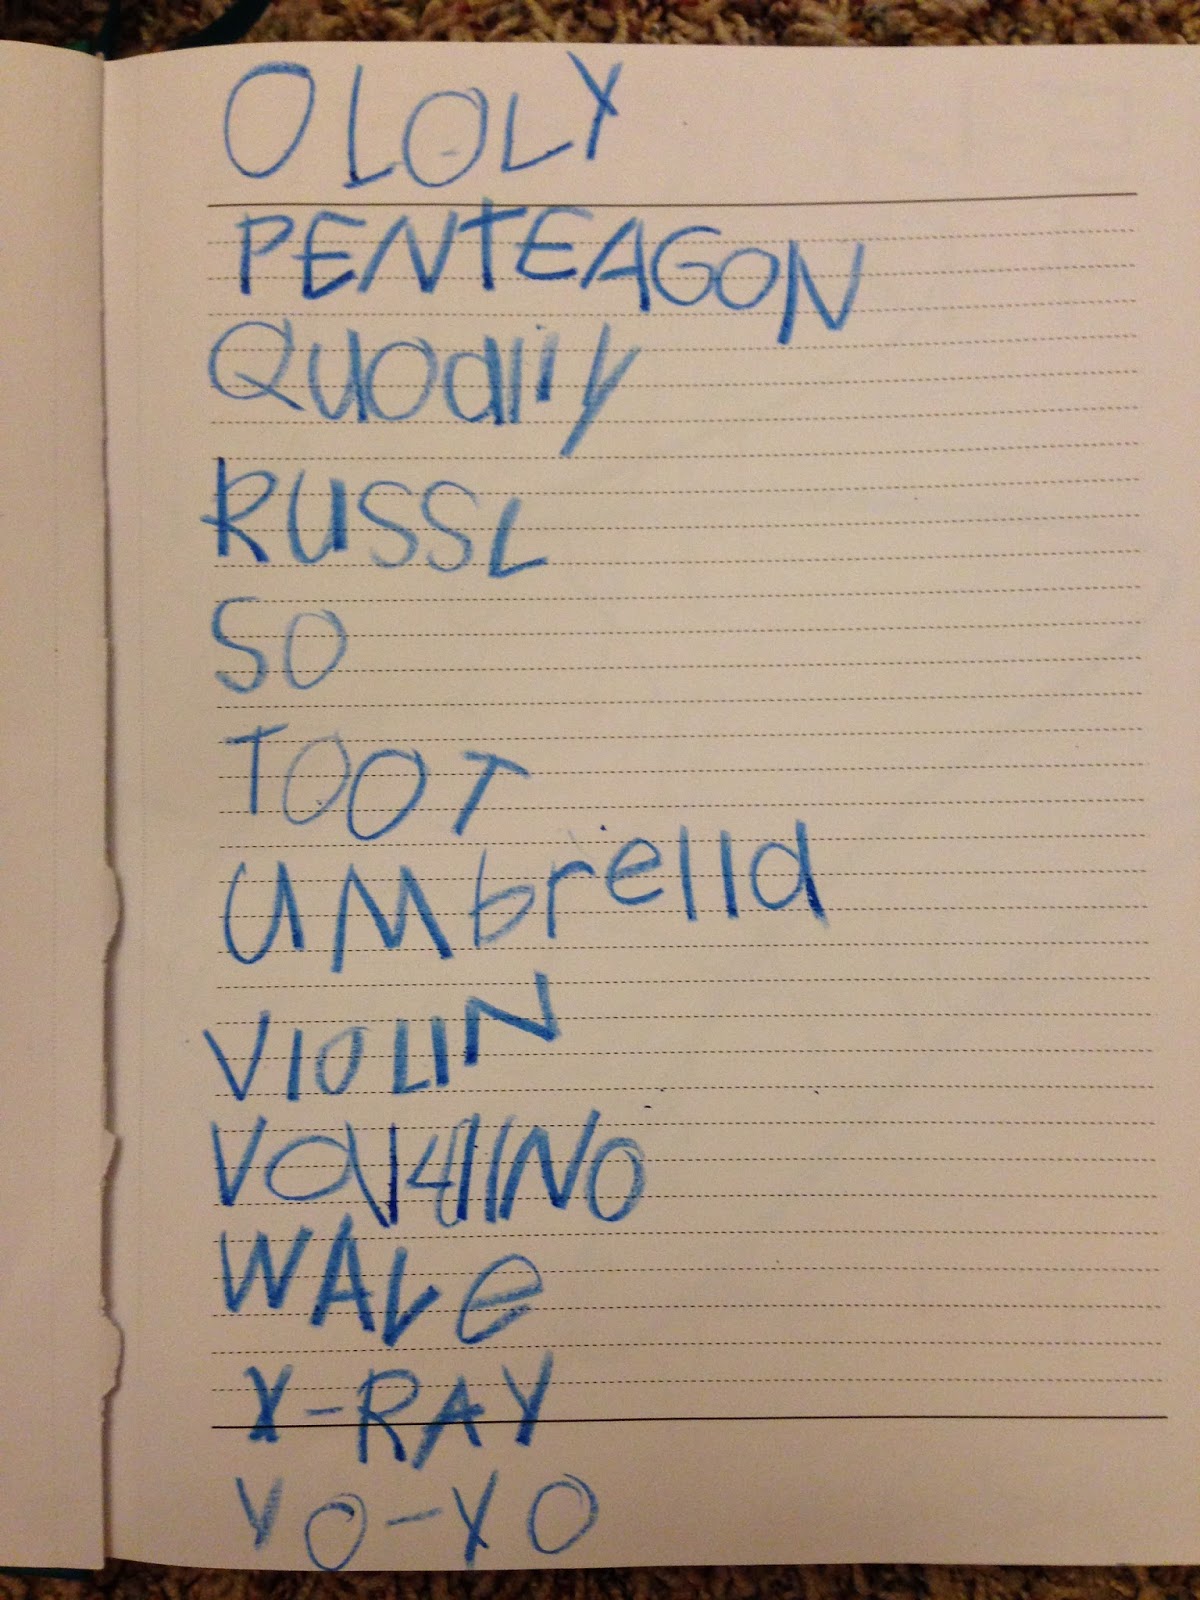 OLOLY
PENTEAGON
Quodliy
RUSSL
SO
TOOT
UMbrella
VIOLIN
WALe
X-RAY
YO-YO